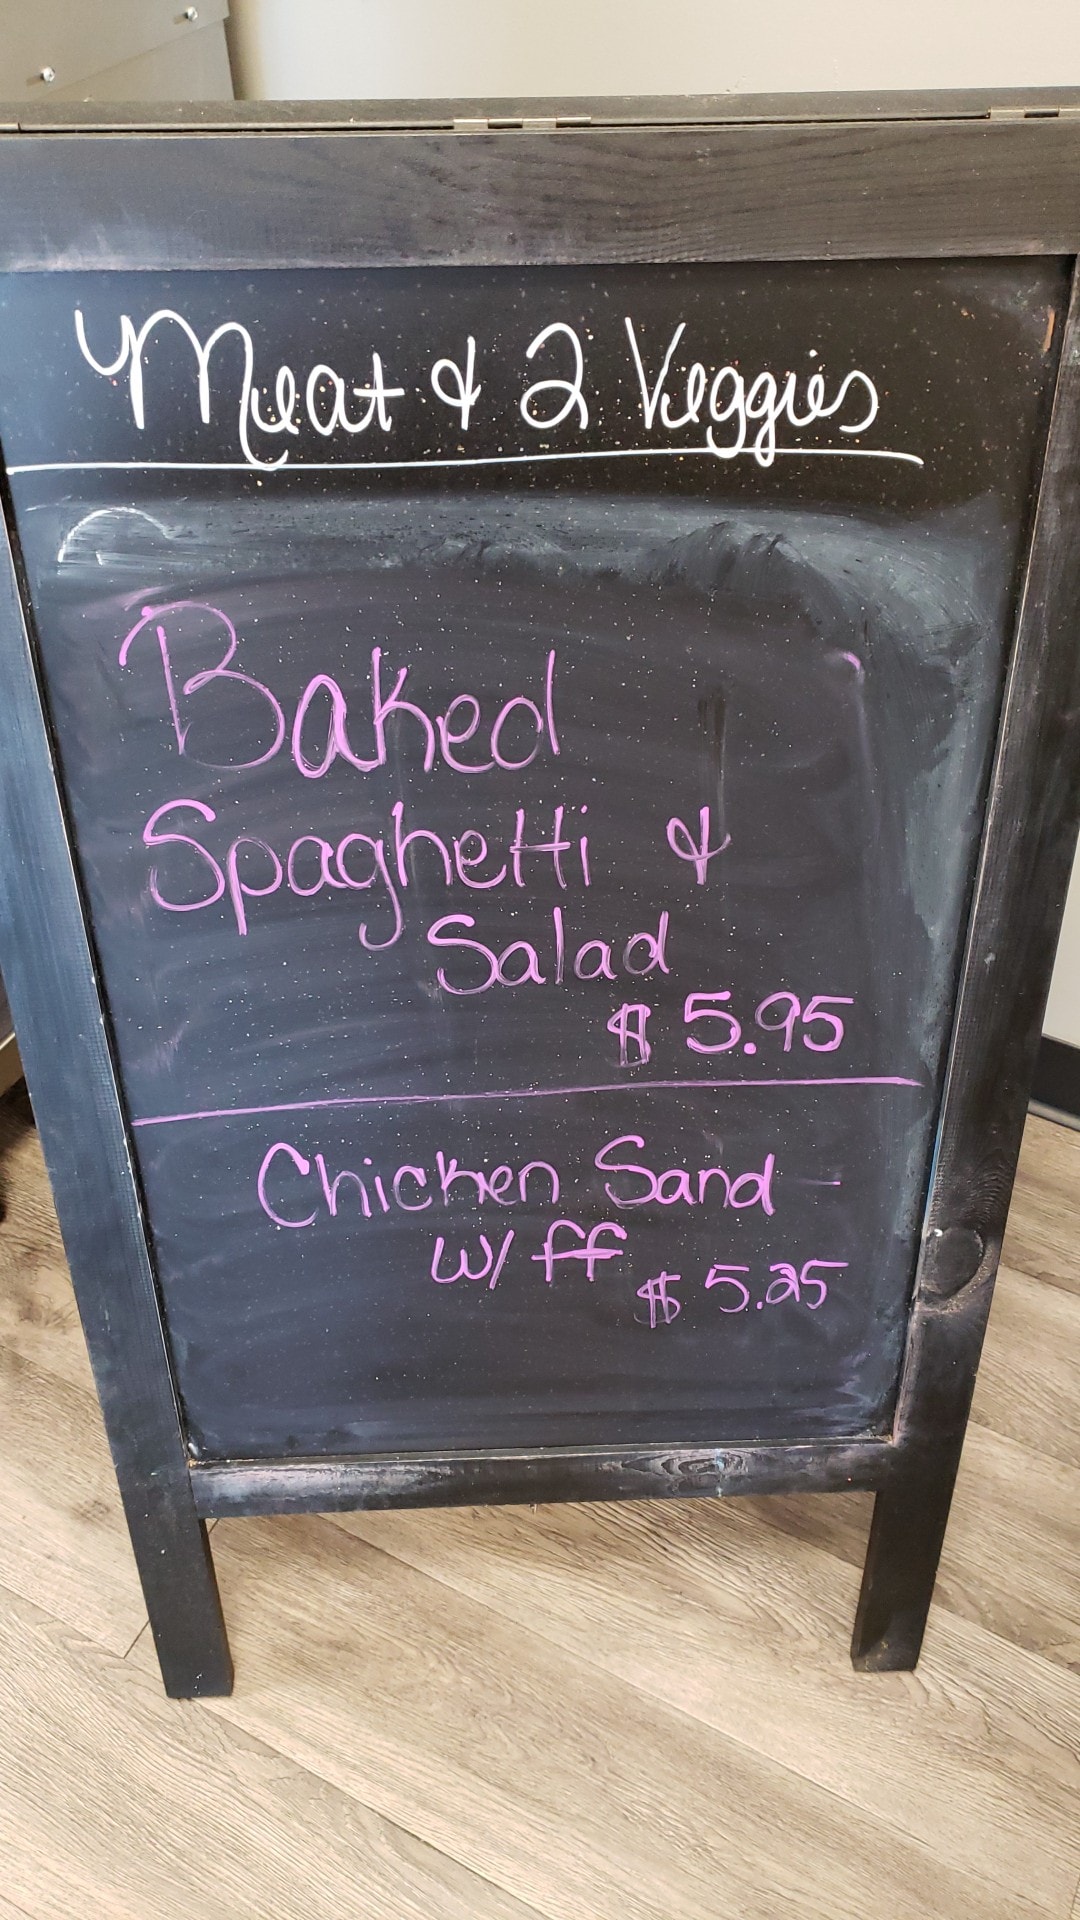 Meat & 2 Veggies
Baked
Spaghetti &
Salad
$ 5.95
Chicken Sand -
w/ ff
$ 5.25